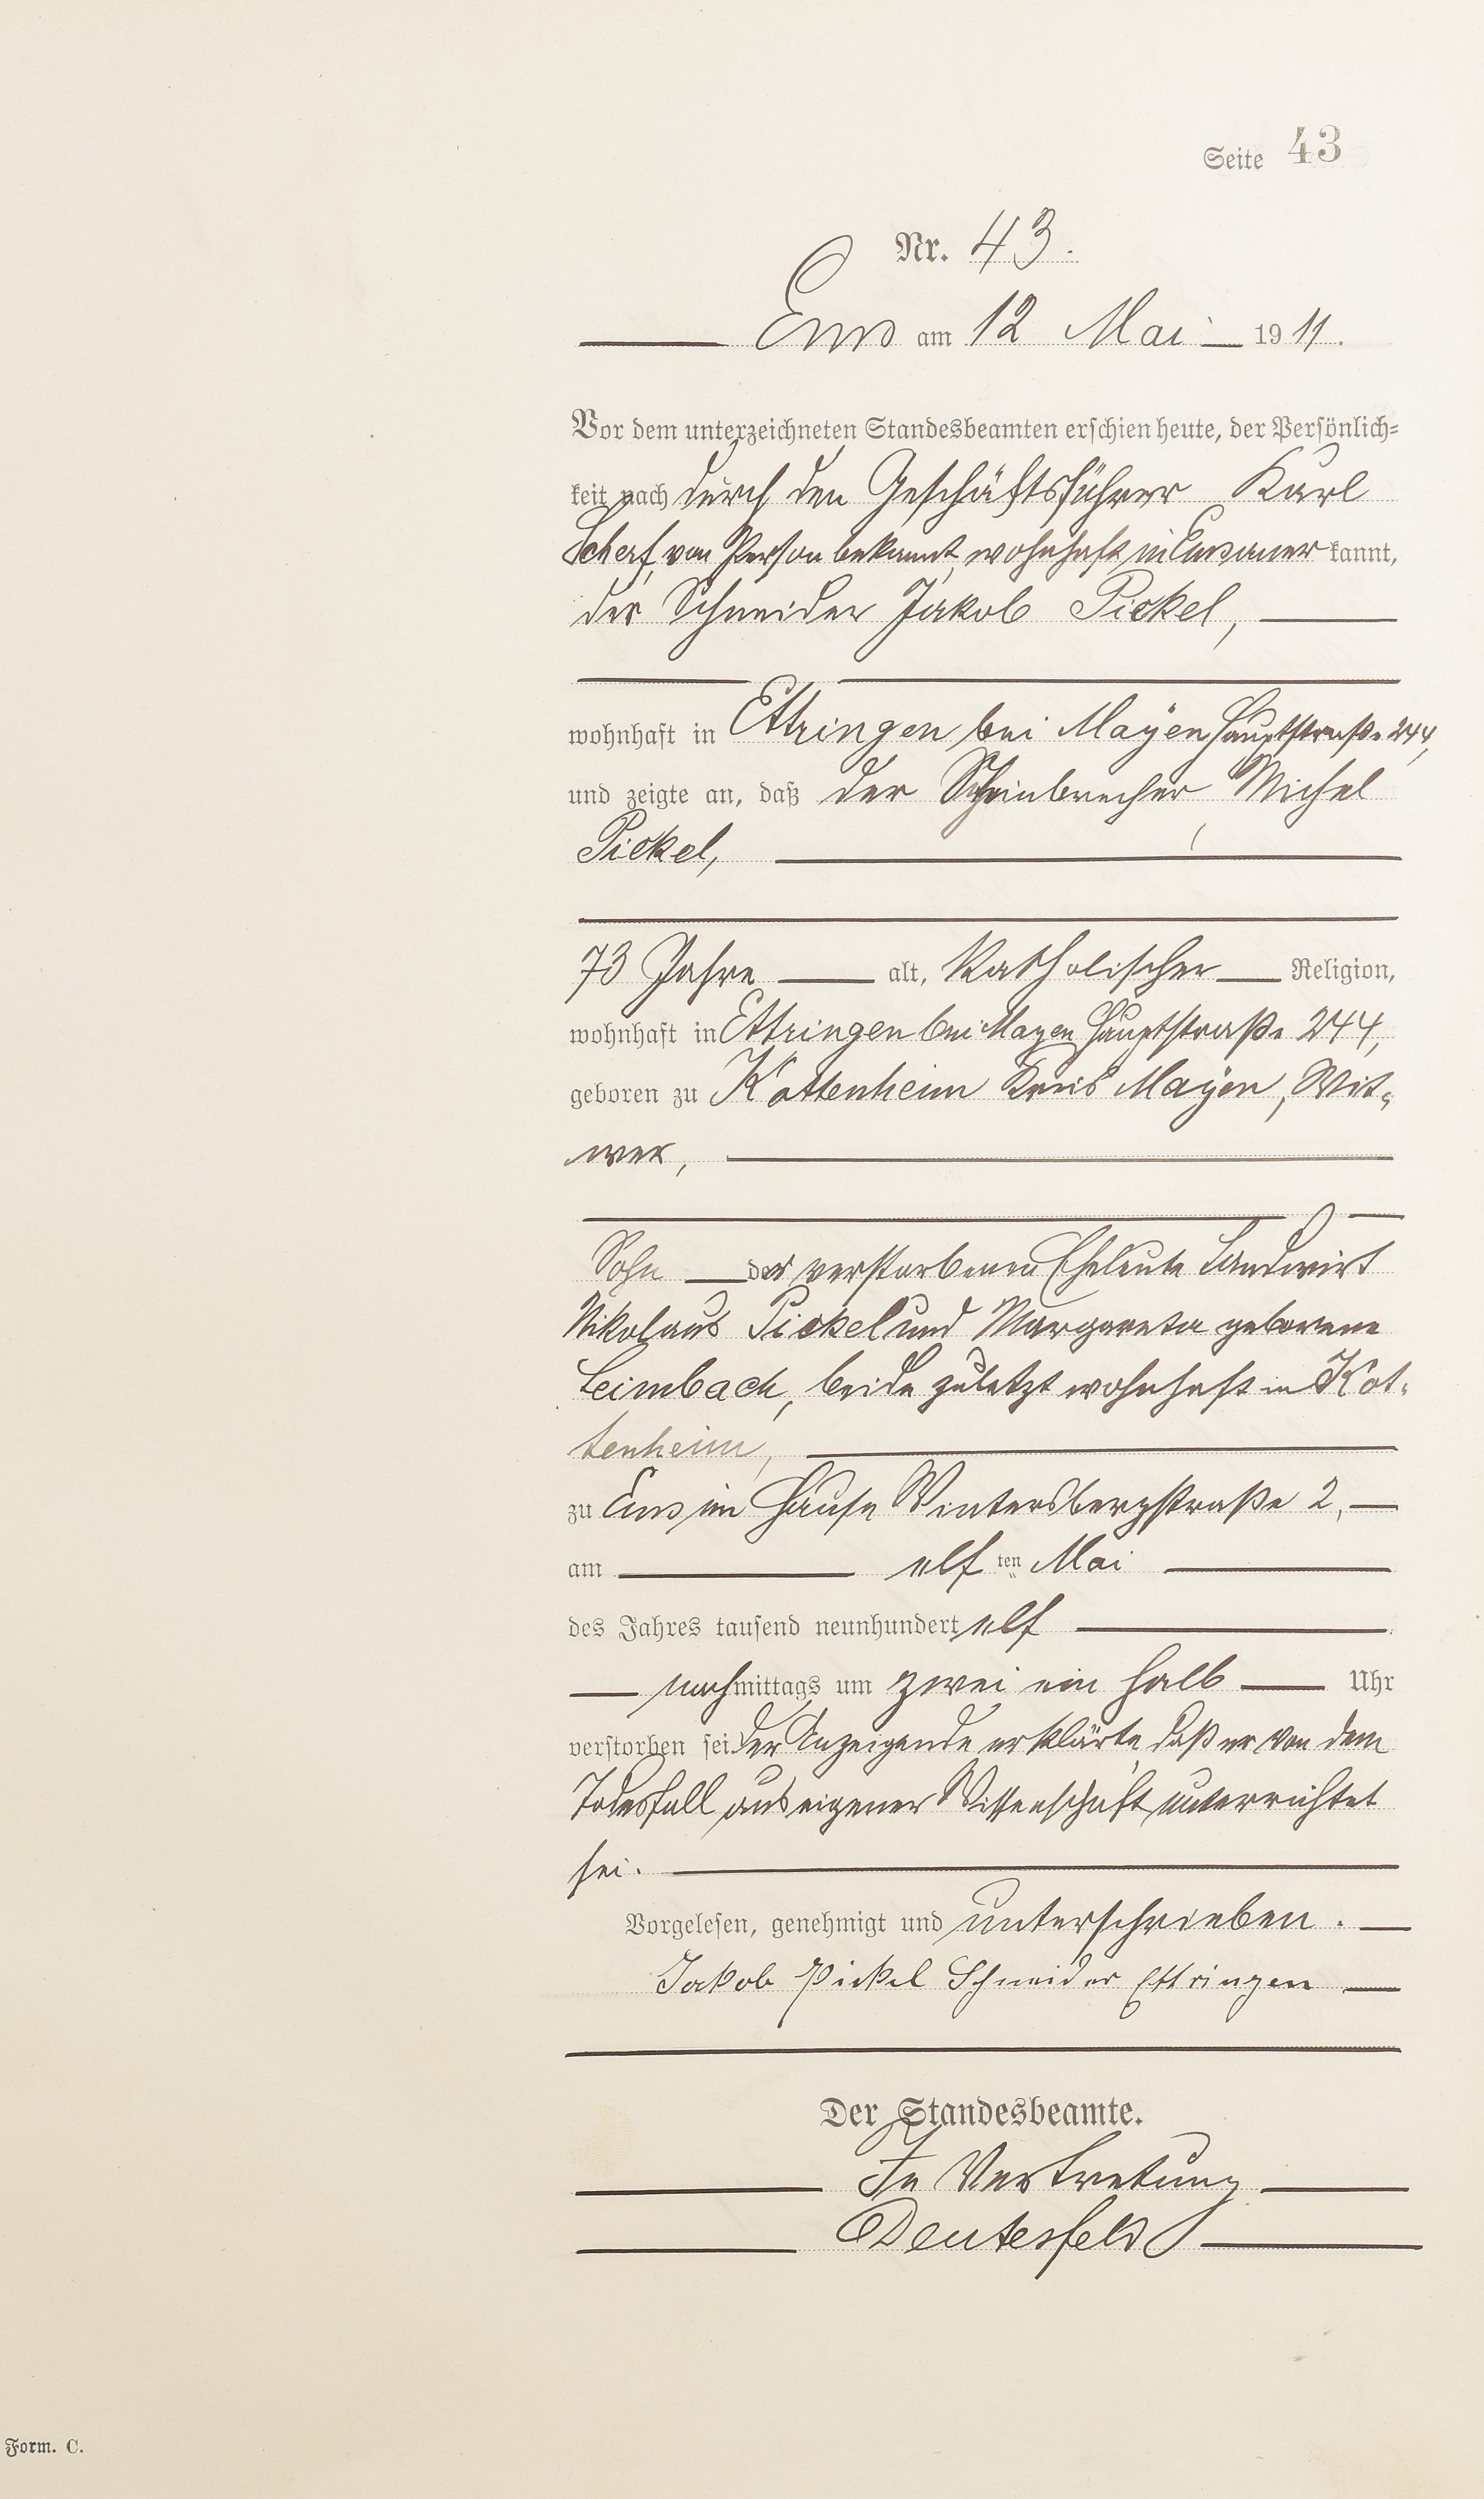 Seite 43
Nr. 43.
Ems am 12 Mai 1911.
Vor dem unterzeichneten Standesbeamten erschien heute, der Persönlich-
keit nach durch den Geschäftsführer Karl
Scherf, von Person bekannt, wohnhaft in Ems aner kannt,
der Schneider Jakob Pickel,
wohnhaft in Ettringen bei Mayen Hauptstraße 244,
und zeigte an, daß der Steinbrecher Michel
Pickel,
73 Jahre alt, Katholischer Religion,
wohnhaft in Ettringen bei Mayen Hauptstraße 244,
geboren zu Kottenheim Kreis Mayen, Wit-
wer,
Sohn der verstorbenen Eheleute Landwirt
Nikolaus Pickel und Margareta geborene
Leimbach, beide zuletzt wohnhaft in Kot-
tenheim,
zu Ems im Hause Wintersbergstraße 2,
am elf ten Mai
des Jahres tausend neunhundert elf
nachmittags um zwei ein halb Uhr
verstorben sei. Der Anzeigende erklärte, daß er von dem
Todesfall aus eigener Wissenschaft unterrichtet
sei.
Vorgelesen, genehmigt und unterschrieben.
Jakob Pickel Schneider Ettringen
Der Standesbeamte.
In Vertretung
Deutesfeld
Form. C.